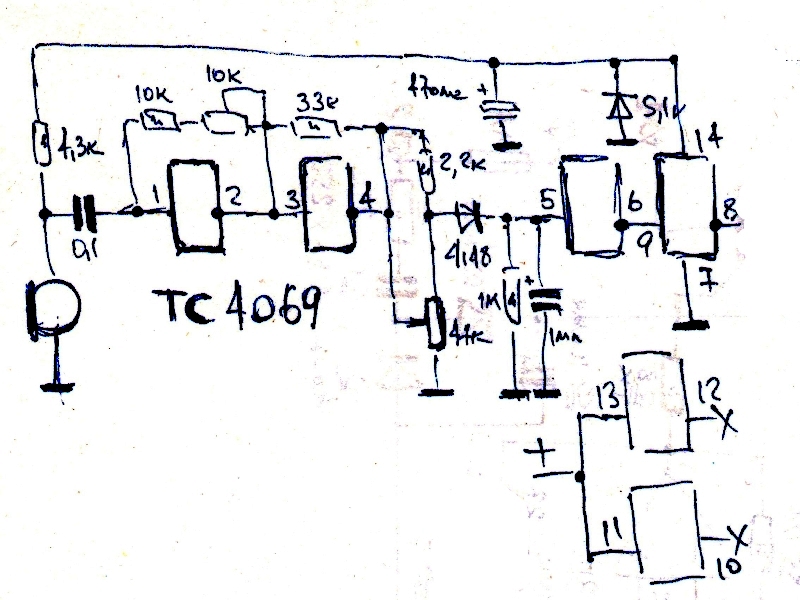 10K
10K
33K
4,3K
470мк +
5,1v
14
2,2K
1
2
3
4
5
6
9
8
7
0,1
4148
TC 4069
1M
+
1мк
47K
13
12
X
+
11
10
X